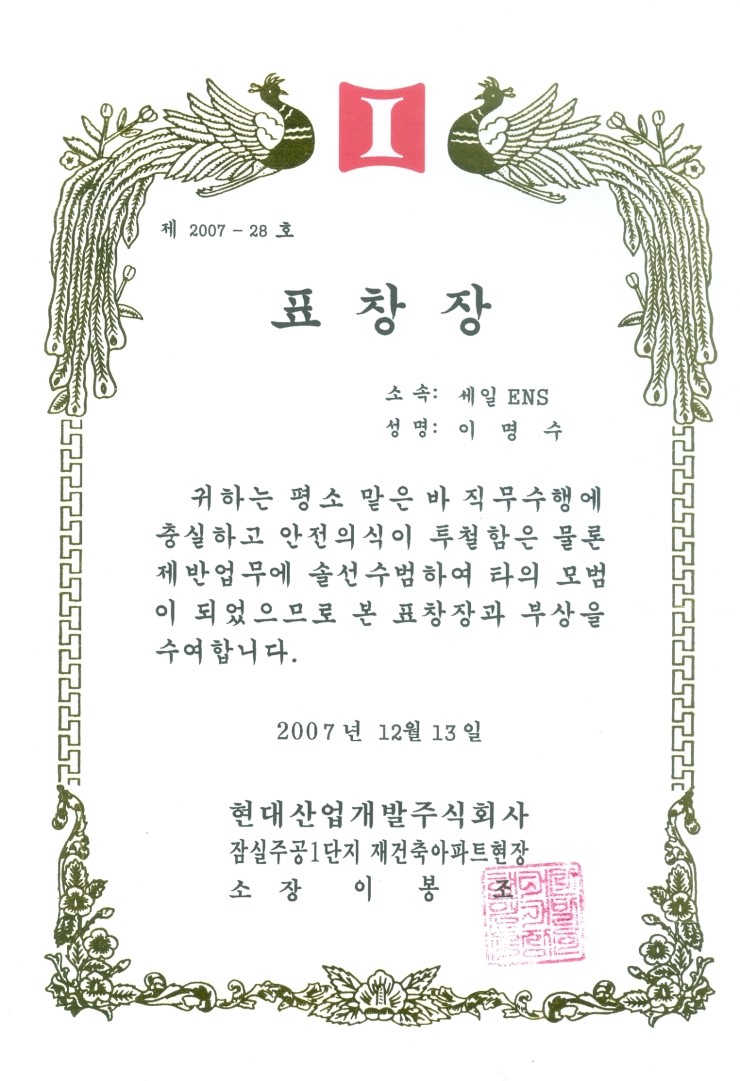 I
제 2007 - 28 호
표 창 장
소 속: 세일 ENS
성 명: 이 명 수
귀하는 평소 맡은 바 직무수행에
충실하고 안전의식이 투철함은 물론
제반업무에 솔선수범하여 타의 모범
이 되었으므로 본 표창장과 부상을
수여합니다.
2007년 12월 13일
현대산업개발주식회사
잠실주공1단지 재건축아파트현장
소 장 이 봉 조